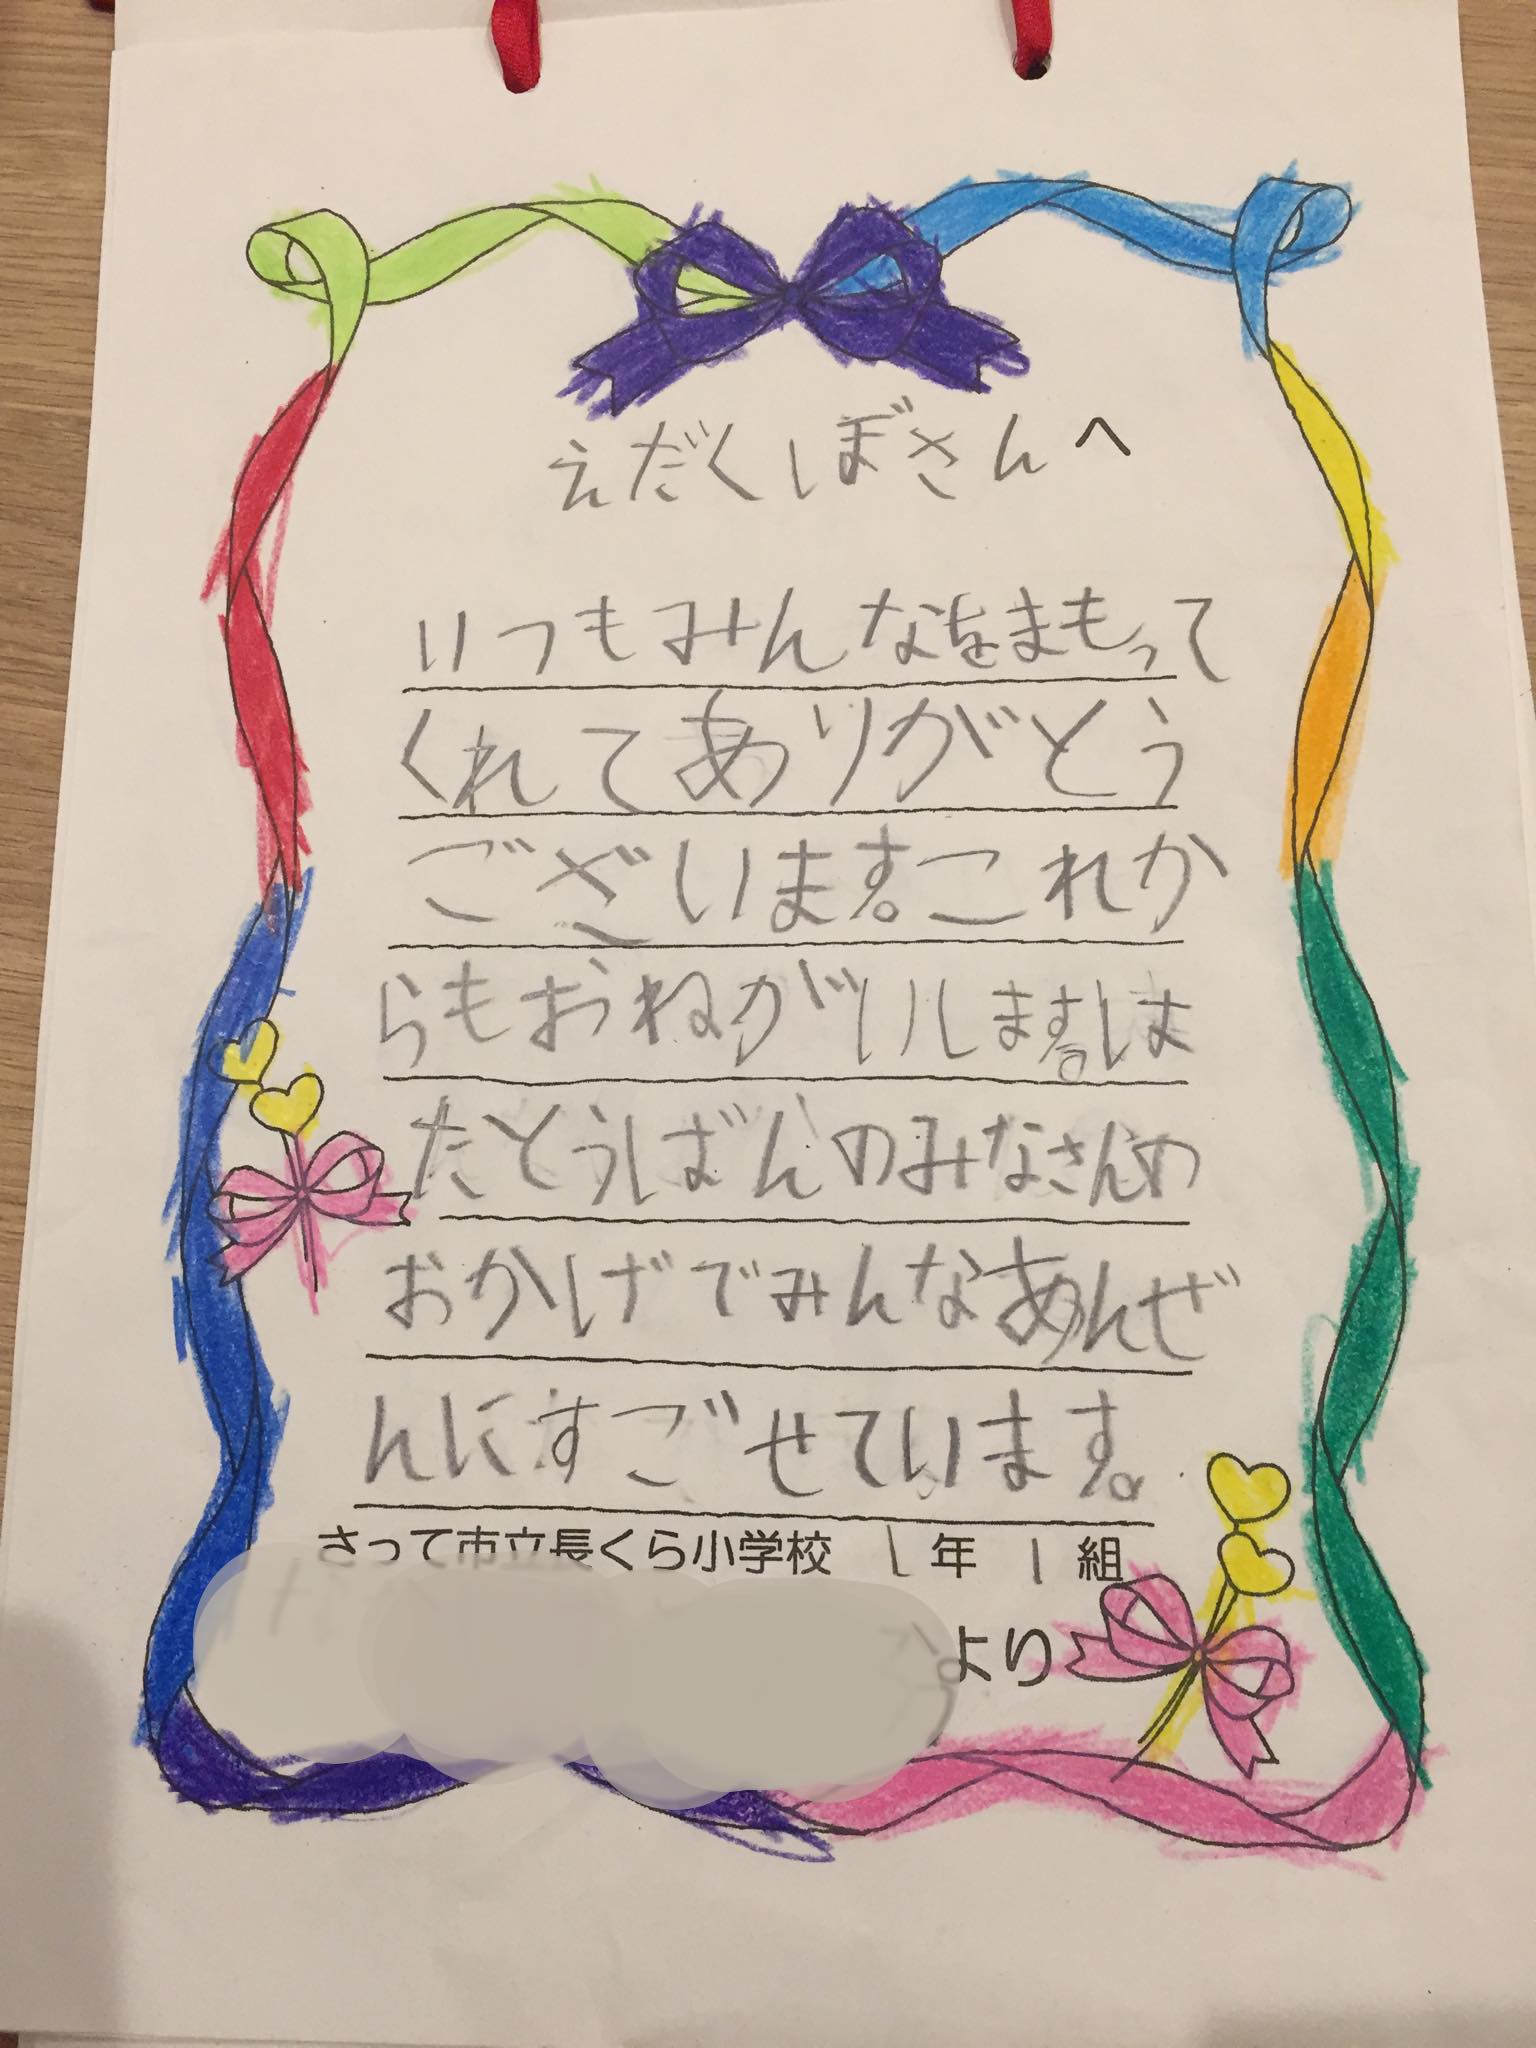 えだくしぼさんへ
いつもみんなをまもって
くれてありがとう
ございます。これか
らもおねがいします。しは
たとうばんのみなさんの
おかげでみんなあんぜ
んにすごせています。
さって市立長くら小学校 1年1組
より